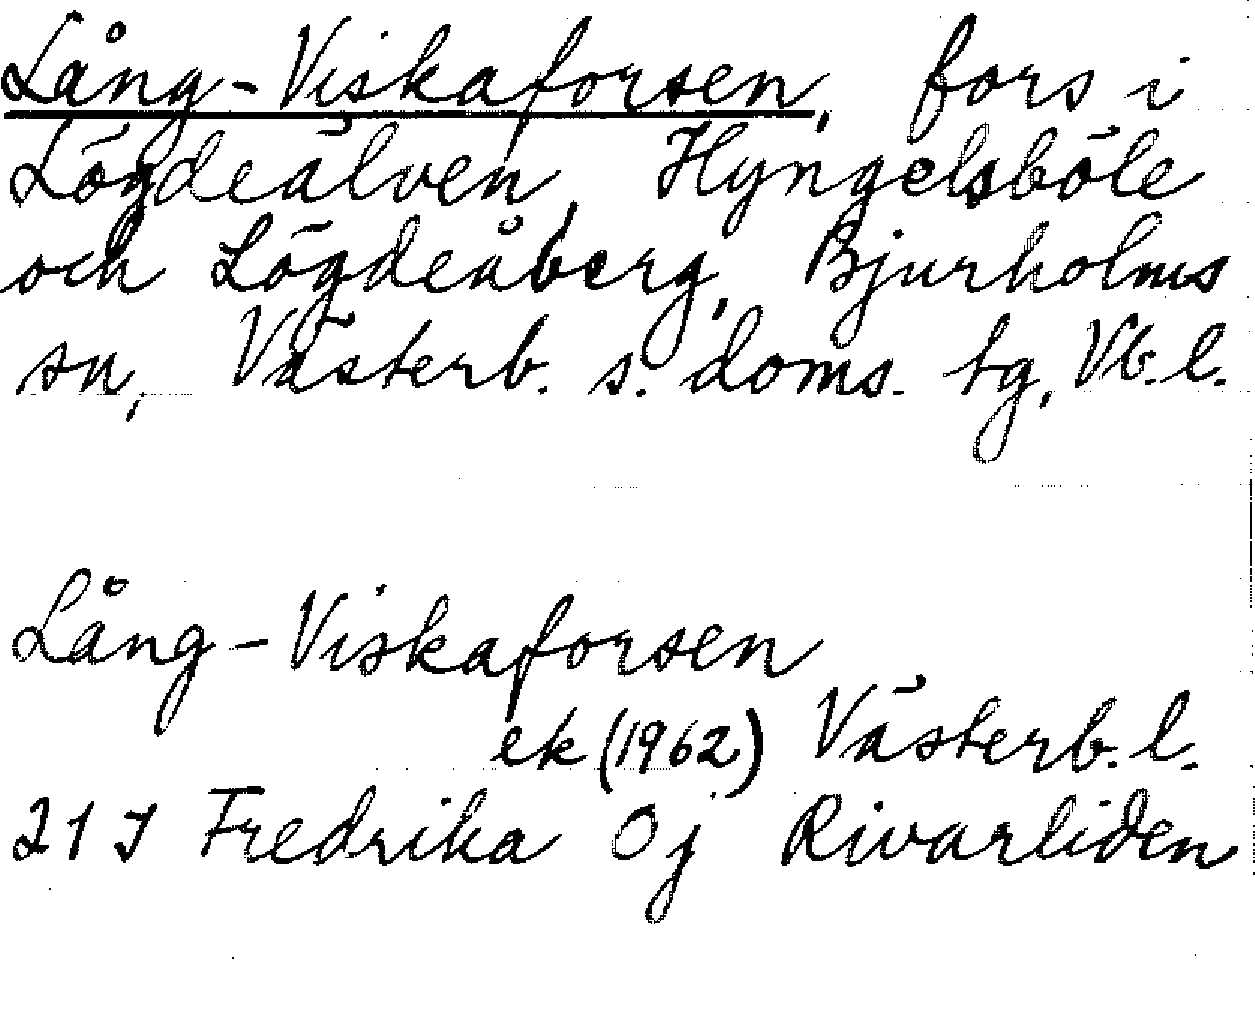 Lång-Viskaforsen, fors i
Lögdeälven, Hyngelsböle
och Lögdeåberg, Bjurholms
sn, Västerb. s. doms. tg, Vb. l.
Lång-Viskaforsen
ek (1962) Västerb. l.
21 J Fredrika 0j Rivarliden